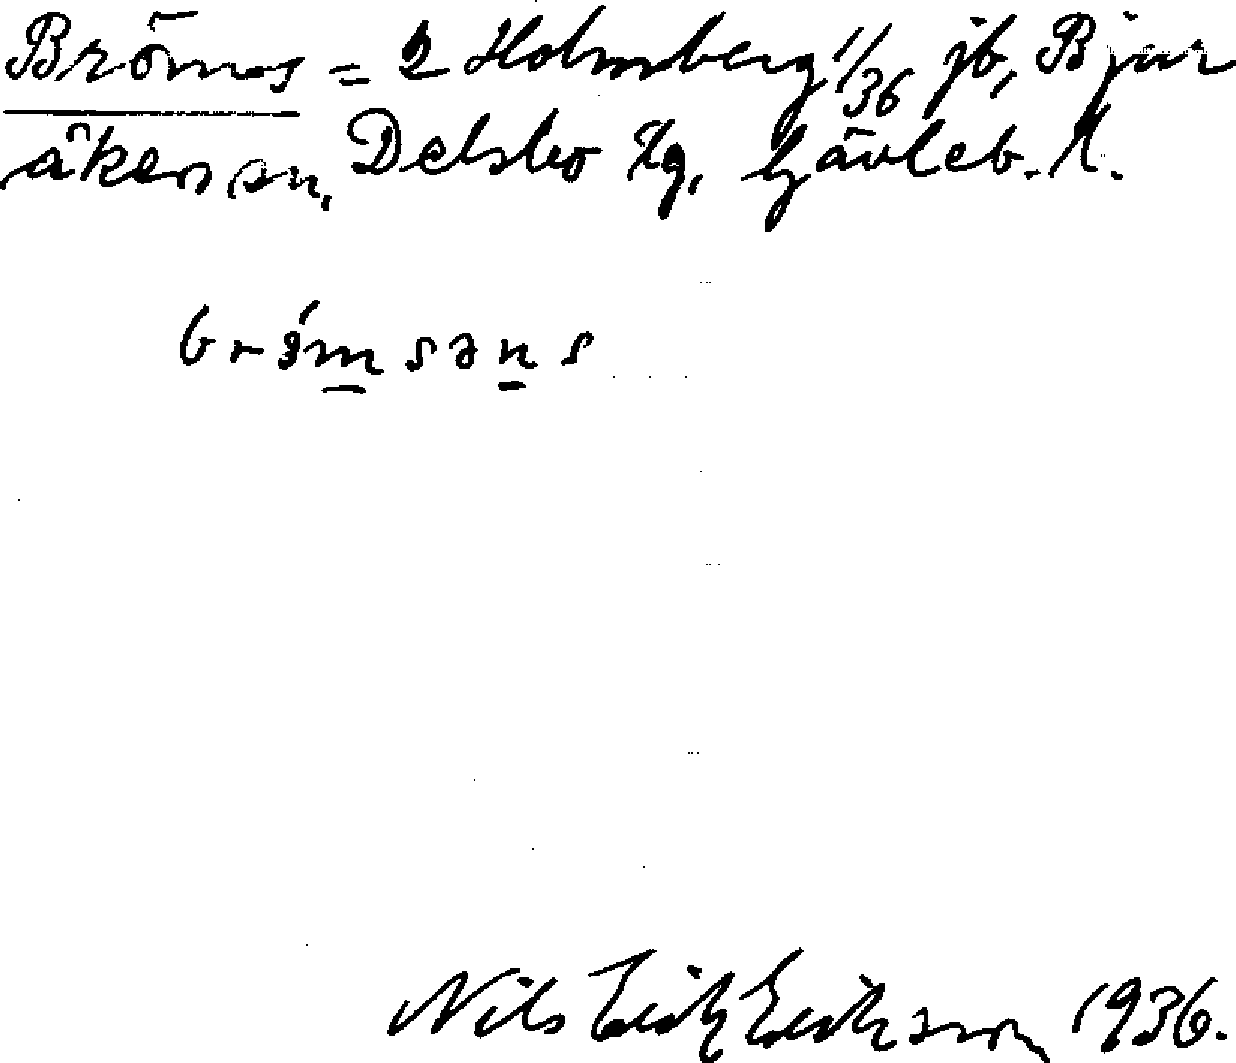 Bröms = 2 Holmberg 1/36 jb, Bjur
åkers sn, Delsbo tg, Gävleb. l.
brömsəns
Nils Erik Eriksson 1936.